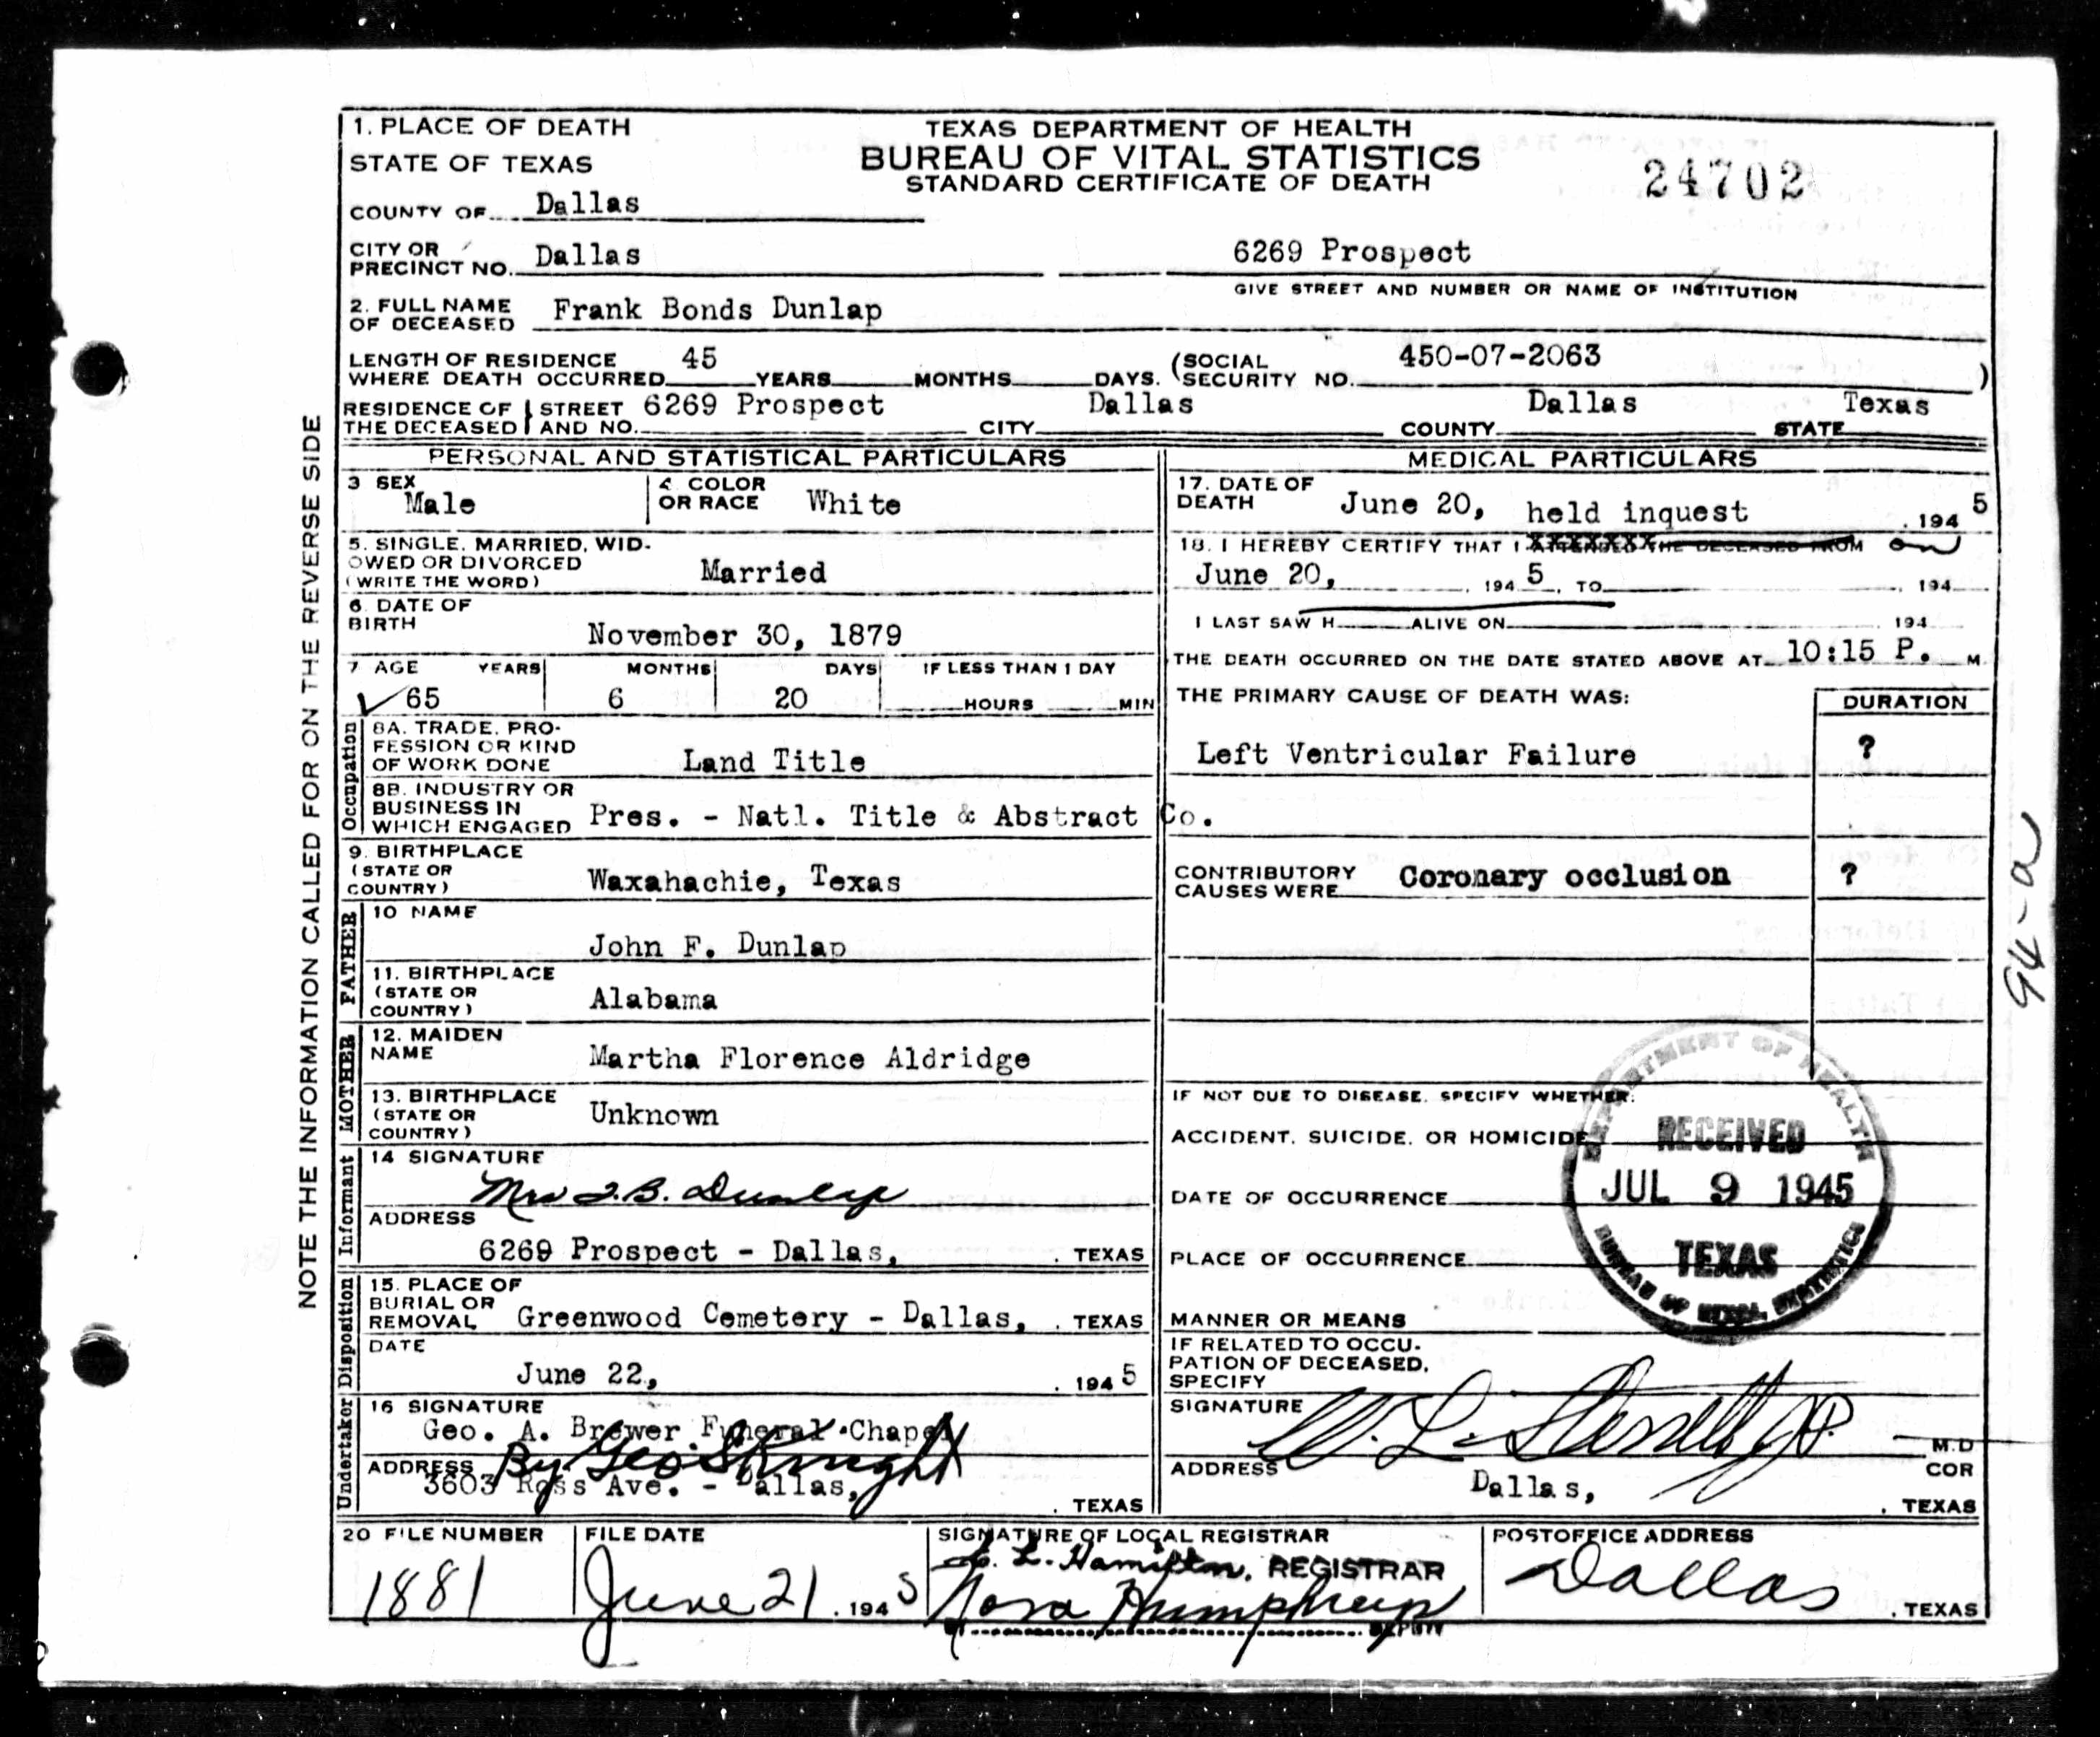 1. PLACE OF DEATH
STATE OF TEXAS
COUNTY OF Dallas
TEXAS DEPARTMENT OF HEALTH
BUREAU OF VITAL STATISTICS
STANDARD CERTIFICATE OF DEATH
24702
CITY OR
PRECINCT NO. Dallas
6269 Prospect
GIVE STREET AND NUMBER OR NAME OF INSTITUTION
2. FULL NAME
OF DECEASED Frank Bonds Dunlap
LENGTH OF RESIDENCE
WHERE DEATH OCCURRED 45 YEARS MONTHS DAYS. (SOCIAL
SECURITY NO. 450-07-2063 )
RESIDENCE OF
THE DECEASED
STREET
AND NO. 6269 Prospect CITY Dallas COUNTY Dallas STATE Texas
NOTE THE INFORMATION CALLED FOR ON THE REVERSE SIDE
PERSONAL AND STATISTICAL PARTICULARS
3 SEX
Male
4 COLOR
OR RACE White
5. SINGLE, MARRIED, WID-
OWED OR DIVORCED
(WRITE THE WORD) Married
6. DATE OF
BIRTH
November 30, 1879
7 AGE YEARS MONTHS DAYS IF LESS THAN 1 DAY
65 6 20 HOURS MIN
Occupation
8A. TRADE, PRO-
FESSION OR KIND
OF WORK DONE Land Title
8B. INDUSTRY OR
BUSINESS IN
WHICH ENGAGED Pres. - Natl. Title & Abstract Co.
9. BIRTHPLACE
(STATE OR
COUNTRY) Waxahachie, Texas
FATHER
10 NAME
John F. Dunlap
11. BIRTHPLACE
(STATE OR
COUNTRY) Alabama
MOTHER
12. MAIDEN
NAME Martha Florence Aldridge
13. BIRTHPLACE
(STATE OR
COUNTRY) Unknown
Informant
14 SIGNATURE
Mrs F.B. Dunlap
ADDRESS
6269 Prospect - Dallas, . TEXAS
Disposition
15. PLACE OF
BURIAL OR
REMOVAL Greenwood Cemetery - Dallas, . TEXAS
DATE
June 22, . 1945
Undertaker
16 SIGNATURE
Geo. A. Brewer Funeral Chapel
By Geo. S Knight
ADDRESS
3603 Ross Ave. - Dallas, . TEXAS
MEDICAL PARTICULARS
17. DATE OF
DEATH June 20, held inquest . 1945
18. I HEREBY CERTIFY THAT I ATTENDED THE DECEASED FROM on
June 20, , 1945, TO , 194
I LAST SAW H ALIVE ON 194
THE DEATH OCCURRED ON THE DATE STATED ABOVE AT 10:15 P. M
THE PRIMARY CAUSE OF DEATH WAS:
DURATION
Left Ventricular Failure ?
CONTRIBUTORY
CAUSES WERE Coronary occlusion ?
94-a
IF NOT DUE TO DISEASE, SPECIFY WHETHER:
ACCIDENT, SUICIDE, OR HOMICIDE
DATE OF OCCURRENCE
PLACE OF OCCURRENCE
MANNER OR MEANS
DEPARTMENT OF HEALTH
RECEIVED
JUL 9 1945
TEXAS
BUREAU OF VITAL STATISTICS
IF RELATED TO OCCU-
PATION OF DECEASED,
SPECIFY
SIGNATURE W. L. Sterrett J.P. M.D
COR
ADDRESS Dallas, . TEXAS
20 FILE NUMBER
1881
FILE DATE
June 21 . 1945
SIGNATURE OF LOCAL REGISTRAR
L. Hamilton, REGISTRAR
Nora Humphreys
DEPUTY
POSTOFFICE ADDRESS
Dallas
. TEXAS